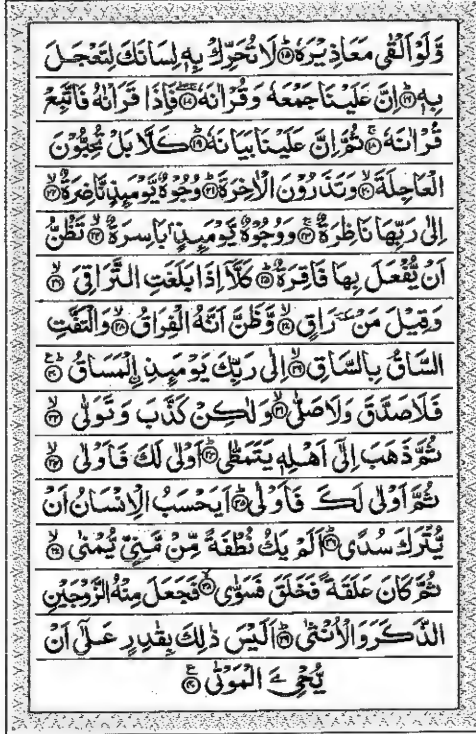 وَّلَوْ اَلْقٰى مَعَاذِيْرَهٗ ؕ﴿۱۵﴾ لَا تُحَرِّكْ بِهٖ لِسَانَكَ لِتَعْجَلَ
بِهٖ ؕ﴿۱۶﴾ اِنَّ عَلَيْنَا جَمْعَهٗ وَقُرْاٰنَهٗ ۚ﴿۱۷﴾ فَاِذَا قَرَاْنٰهُ فَاتَّبِعْ
قُرْاٰنَهٗ ۚ﴿۱۸﴾ ثُمَّ اِنَّ عَلَيْنَا بَيَانَهٗ ؕ﴿۱۹﴾ كَلَّا بَلْ تُحِبُّوْنَ
الْعَاجِلَةَ ۙ﴿۲۰﴾ وَتَذَرُوْنَ الْاٰخِرَةَ ؕ﴿۲۱﴾ وُجُوْهٌ يَّوْمَئِذٍ نَّاضِرَةٌ ۙ﴿۲۲﴾
اِلٰى رَبِّهَا نَاظِرَةٌ ۚ﴿۲۳﴾ وَوُجُوْهٌ يَّوْمَئِذٍۭ بَاسِرَةٌ ۙ﴿۲۴﴾ تَظُنُّ
اَنْ يُّفْعَلَ بِهَا فَاقِرَةٌ ؕ﴿۲۵﴾ كَلَّاۤ اِذَا بَلَغَتِ التَّرَاقِيَ ۙ﴿۲۶﴾
وَقِيْلَ مَنْ ٚ رَاقٍ ۙ﴿۲۷﴾ وَّظَنَّ اَنَّهُ الْفِرَاقُ ۙ﴿۲۸﴾ وَالْتَفَّتِ
السَّاقُ بِالسَّاقِ ۙ﴿۲۹﴾ اِلٰى رَبِّكَ يَوْمَئِذِ ۟الْمَسَاقُ ؕ﴿۳۰﴾
فَلَا صَدَّقَ وَلَا صَلّٰى ۙ﴿۳۱﴾ وَلٰكِنْ كَذَّبَ وَتَوَلّٰى ۙ﴿۳۲﴾
ثُمَّ ذَهَبَ اِلٰۤى اَهْلِهٖ يَتَمَطّٰى ؕ﴿۳۳﴾ اَوْلٰى لَكَ فَاَوْلٰى ۙ﴿۳۴﴾
ثُمَّ اَوْلٰى لَكَ فَاَوْلٰى ؕ﴿۳۵﴾ اَيَحْسَبُ الْاِنْسَانُ اَنْ
يُّتْرَكَ سُدًى ؕ﴿۳۶﴾ اَلَمْ يَكُ نُطْفَةً مِّنْ مَّنِيٍّ يُّمْنٰى ۙ﴿۳۷﴾
ثُمَّ كَانَ عَلَقَةً فَخَلَقَ فَسَوّٰى ۙ﴿۳۸﴾ فَجَعَلَ مِنْهُ الزَّوْجَيْنِ
الذَّكَرَ وَالْاُنْثٰى ؕ﴿۳۹﴾ اَلَيْسَ ذٰلِكَ بِقٰدِرٍ عَلٰۤى اَنْ
يُّحْيِۦَ الْمَوْتٰى ۠﴿۴۰﴾